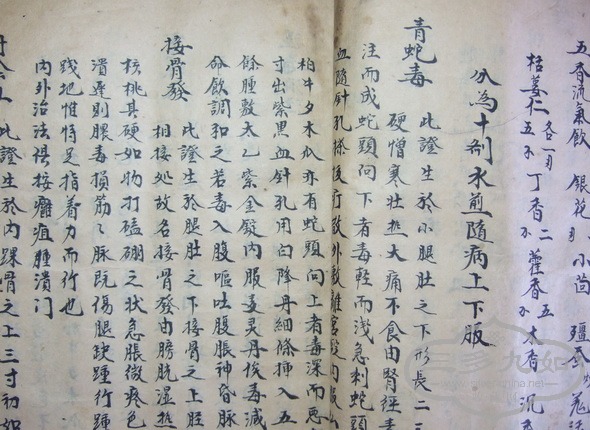 五香流氣飲 銀花 小茴
枯姜仁 各一 五 丁香 二 藿香 五 木香 沉
分為十劑水煎隨病上下服
青蛇毒 此證生於小腿肚之下形長二三
硬憎寒壯熱大痛不食由腎經毒
注而成蛇頭向下者毒輕而淺急刺蛇頭
血隨針孔
柏牛夕木瓜亦有蛇頭向上者毒深而惡
寸出紫黑血針孔用白降丹細條揷入五
餘腫敷太乙紫金錠內服麦灵丹俟毒減
命飲調和之若毒入腹嘔吐腹脹神昏脉
接骨發 此證生於腿肚之下接骨之上脛
相接処故名接骨發由膀胱湿熱
核挑其硬如物打磕硼之狀急脹微疼色
潰遲則膿毒損筋筋脉既傷腿缺踵行踵
踐地惟恃足指着力而行也
內外治法俱按癰疽腫潰門
此證生於內踝骨之上三寸初如